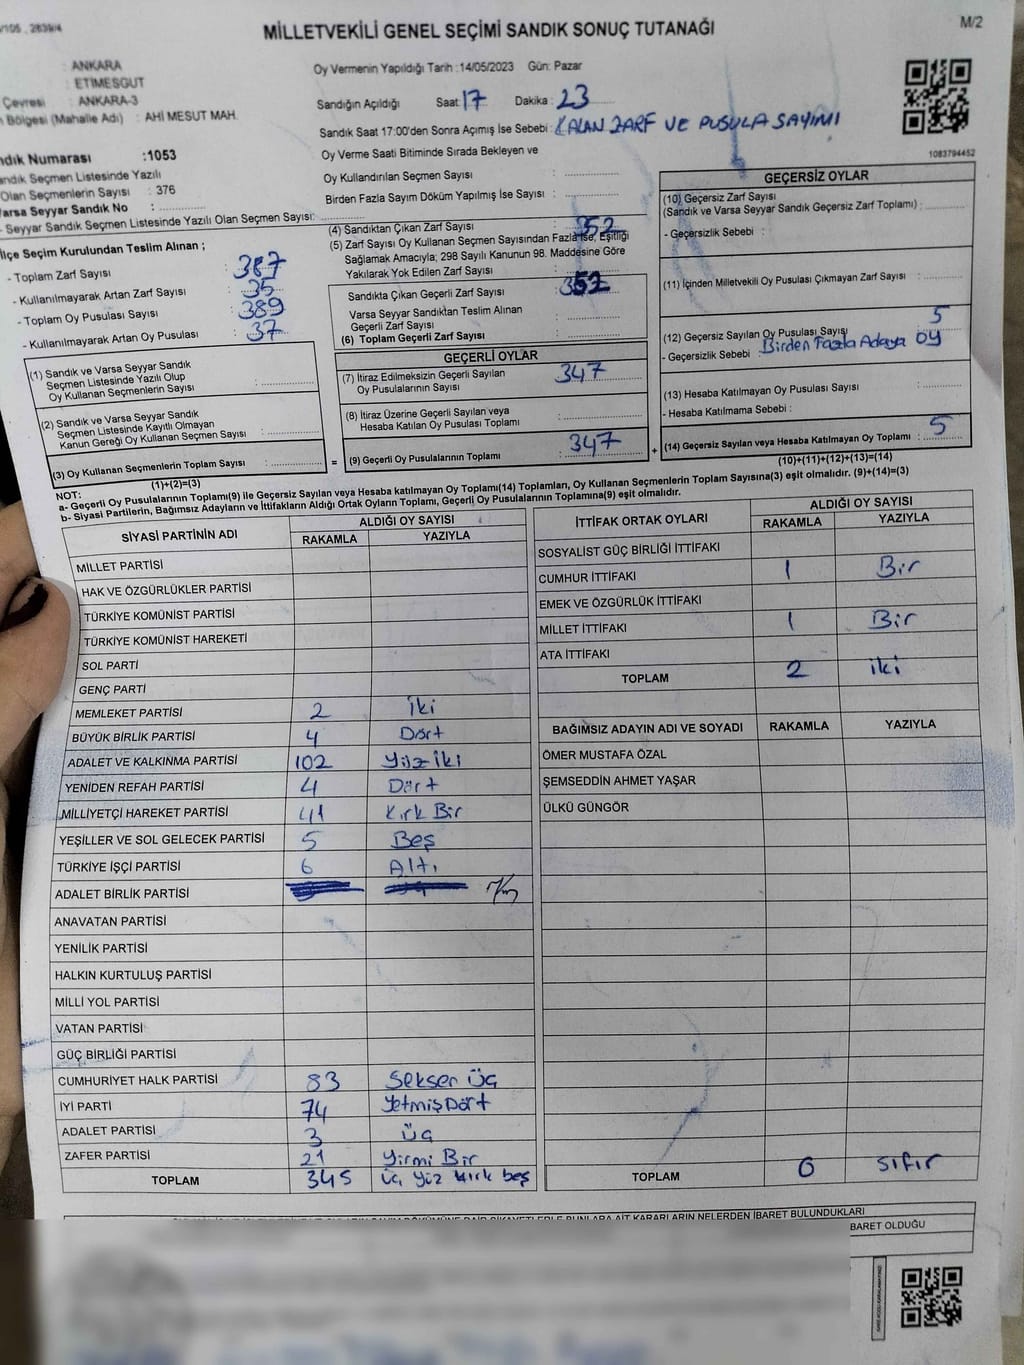 /105 , 2839/4
MİLLETVEKİLİ GENEL SEÇİMİ SANDIK SONUÇ TUTANAĞI
M/2
: ANKARA
: ETİMESGUT
Çevresi : ANKARA-3
Bölgesi (Mahalle Adı) : AHİ MESUT MAH.
Oy Vermenin Yapıldığı Tarih :14/05/2023 Gün: Pazar
Sandığın Açıldığı Saat: 17 Dakika : 23
Sandık Saat 17:00'den Sonra Açımış İse Sebebi: KALAN ZARF VE PUSULA SAYIMI
Oy Verme Saati Bitiminde Sırada Bekleyen ve
Oy Kullandırılan Seçmen Sayısı :
Birden Fazla Sayım Döküm Yapılmış İse Sayısı :
1083794452
ndık Numarası :1053
andık Seçmen Listesinde Yazılı
Olan Seçmenlerin Sayısı : 376
Varsa Seyyar Sandık No :
- Seyyar Sandık Seçmen Listesinde Yazılı Olan Seçmen Sayısı:
İlçe Seçim Kurulundan Teslim Alınan ;
- Toplam Zarf Sayısı 387
- Kullanılmayarak Artan Zarf Sayısı 35
- Toplam Oy Pusulası Sayısı 389
- Kullanılmayarak Artan Oy Pusulası 37
(1) Sandık ve Varsa Seyyar Sandık
Seçmen Listesinde Yazılı Olup
Oy Kullanan Seçmenlerin Sayısı :
(2) Sandık ve Varsa Seyyar Sandık
Seçmen Listesinde Kayıtlı Olmayan
Kanun Gereği Oy Kullanan Seçmen Sayısı :
(3) Oy Kullanan Seçmenlerin Toplam Sayısı :
(1)+(2)=(3)
(4) Sandıktan Çıkan Zarf Sayısı : 352
(5) Zarf Sayısı Oy Kullanan Seçmen Sayısından Fazla ise, Eşitliği
Sağlamak Amacıyla; 298 Sayılı Kanunun 98. Maddesine Göre
Yakılarak Yok Edilen Zarf Sayısı :
Sandıkta Çıkan Geçerli Zarf Sayısı : 352
Varsa Seyyar Sandıktan Teslim Alınan
Geçerli Zarf Sayısı :
(6) Toplam Geçerli Zarf Sayısı :
GEÇERLİ OYLAR
(7) İtiraz Edilmeksizin Geçerli Sayılan
Oy Pusulalarının Sayısı : 347
(8) İtiraz Üzerine Geçerli Sayılan veya
Hesaba Katılan Oy Pusulası Toplamı :
= (9) Geçerli Oy Pusulalarının Toplamı : 347
GEÇERSİZ OYLAR
(10) Geçersiz Zarf Sayısı
(Sandık ve Varsa Seyyar Sandık Geçersiz Zarf Toplamı) :
- Geçersizlik Sebebi :
(11) İçinden Milletvekili Oy Pusulası Çıkmayan Zarf Sayısı :
(12) Geçersiz Sayılan Oy Pusulası Sayısı : 5
- Geçersizlik Sebebi : Birden Fazla Adaya OY
(13) Hesaba Katılmayan Oy Pusulası Sayısı :
- Hesaba Katılmama Sebebi :
+ (14) Geçersiz Sayılan veya Hesaba Katılmayan Oy Toplamı : 5
(10)+(11)+(12)+(13)=(14)
NOT:
a- Geçerli Oy Pusulalarının Toplamı(9) ile Geçersiz Sayılan veya Hesaba katılmayan Oy Toplamı(14) Toplamları, Oy Kullanan Seçmenlerin Toplam Sayısına(3) eşit olmalıdır. (9)+(14)=(3)
b- Siyasi Partilerin, Bağımsız Adayların ve İttifakların Aldığı Ortak Oyların Toplamı, Geçerli Oy Pusulalarının Toplamına(9) eşit olmalıdır.
SİYASİ PARTİNİN ADI ALDIĞI OY SAYISI
RAKAMLA YAZIYLA
MİLLET PARTİSİ
HAK VE ÖZGÜRLÜKLER PARTİSİ
TÜRKİYE KOMÜNİST PARTİSİ
TÜRKİYE KOMÜNİST HAREKETİ
SOL PARTİ
GENÇ PARTİ
MEMLEKET PARTİSİ 2 iki
BÜYÜK BİRLİK PARTİSİ 4 Dört
ADALET VE KALKINMA PARTİSİ 102 Yüz iki
YENİDEN REFAH PARTİSİ 4 Dört
MİLLİYETÇİ HAREKET PARTİSİ 41 Kırk Bir
YEŞİLLER VE SOL GELECEK PARTİSİ 5 Beş
TÜRKİYE İŞÇİ PARTİSİ 6 Altı
ADALET BİRLİK PARTİSİ
ANAVATAN PARTİSİ
YENİLİK PARTİSİ
HALKIN KURTULUŞ PARTİSİ
MİLLİ YOL PARTİSİ
VATAN PARTİSİ
GÜÇ BİRLİĞİ PARTİSİ
CUMHURİYET HALK PARTİSİ 83 Seksen Üç
İYİ PARTİ 74 YetmişDört
ADALET PARTİSİ 3 Üç
ZAFER PARTİSİ 21 Yirmi Bir
TOPLAM 345 Üç Yüz kırk beş
İTTİFAK ORTAK OYLARI ALDIĞI OY SAYISI
RAKAMLA YAZIYLA
SOSYALİST GÜÇ BİRLİĞİ İTTİFAKI
CUMHUR İTTİFAKI 1 Bir
EMEK VE ÖZGÜRLÜK İTTİFAKI
MİLLET İTTİFAKI 1 Bir
ATA İTTİFAKI
TOPLAM 2 iki
BAĞIMSIZ ADAYIN ADI VE SOYADI RAKAMLA YAZIYLA
ÖMER MUSTAFA ÖZAL
ŞEMSEDDİN AHMET YAŞAR
ÜLKÜ GÜNGÖR
TOPLAM 0 sıfır
KARARLARIN NELERDEN İBARET BULUNDUKLARI
BARET OLDUĞU